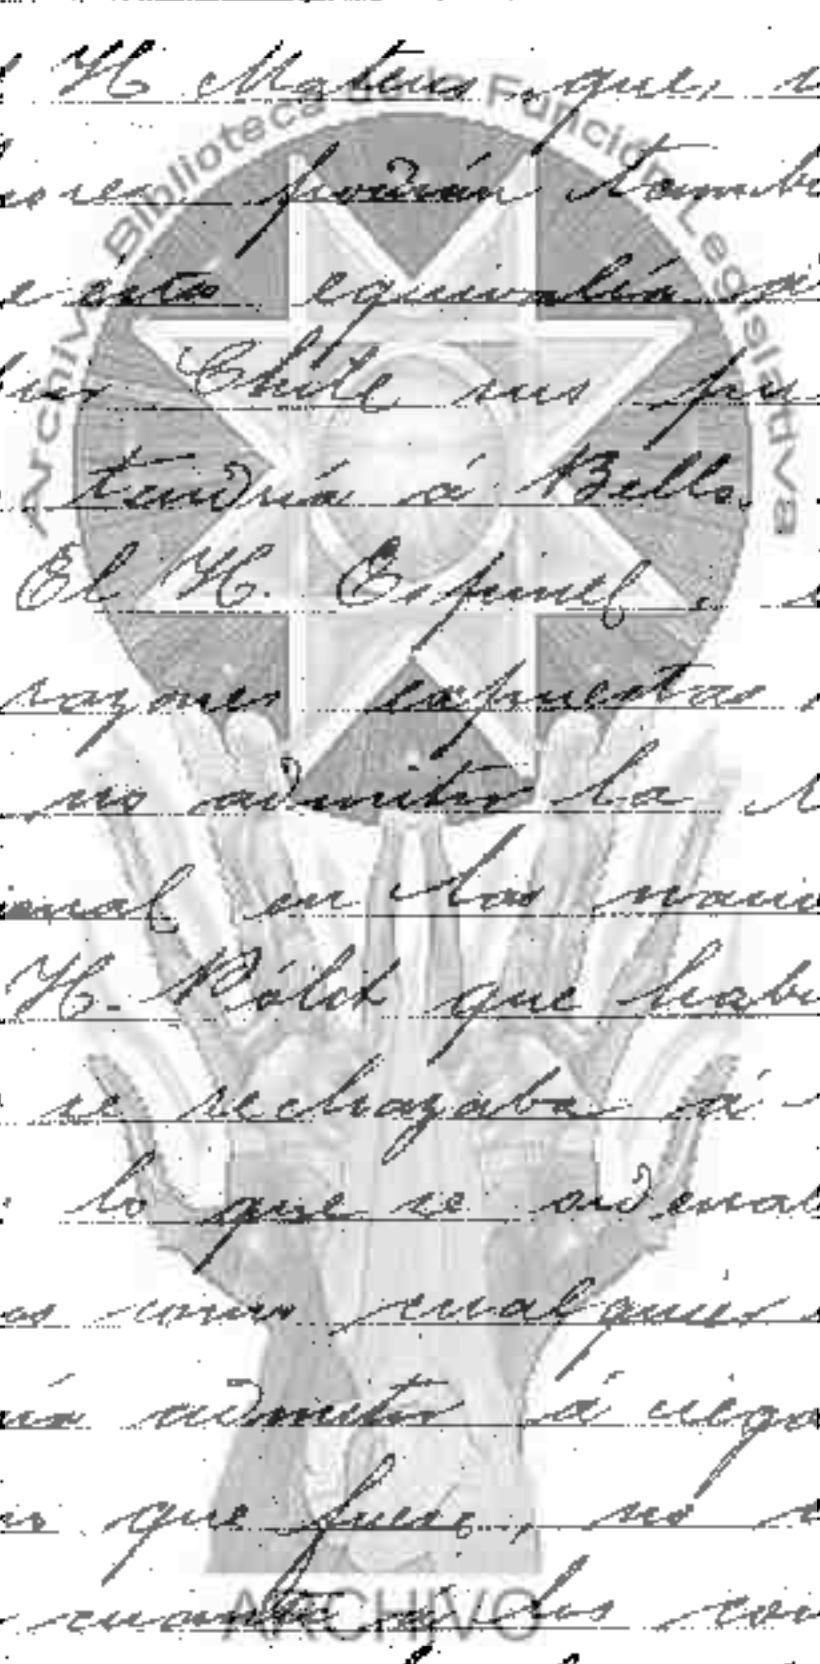 H Mateus, que,
podrán tamb
e ésta equivalía á
Chile sus pu
tendría á Bello.
El H. Espinel,
razones expuestas
no admitir la
ional en los
H. Pólit que habi
se rechazaba á
lo que se ordenab
os como cualquier
ía admitir á ciega
que fuese, no
cuanto á los con
Archivo Biblioteca de la Función Legislativa
ARCHIVO